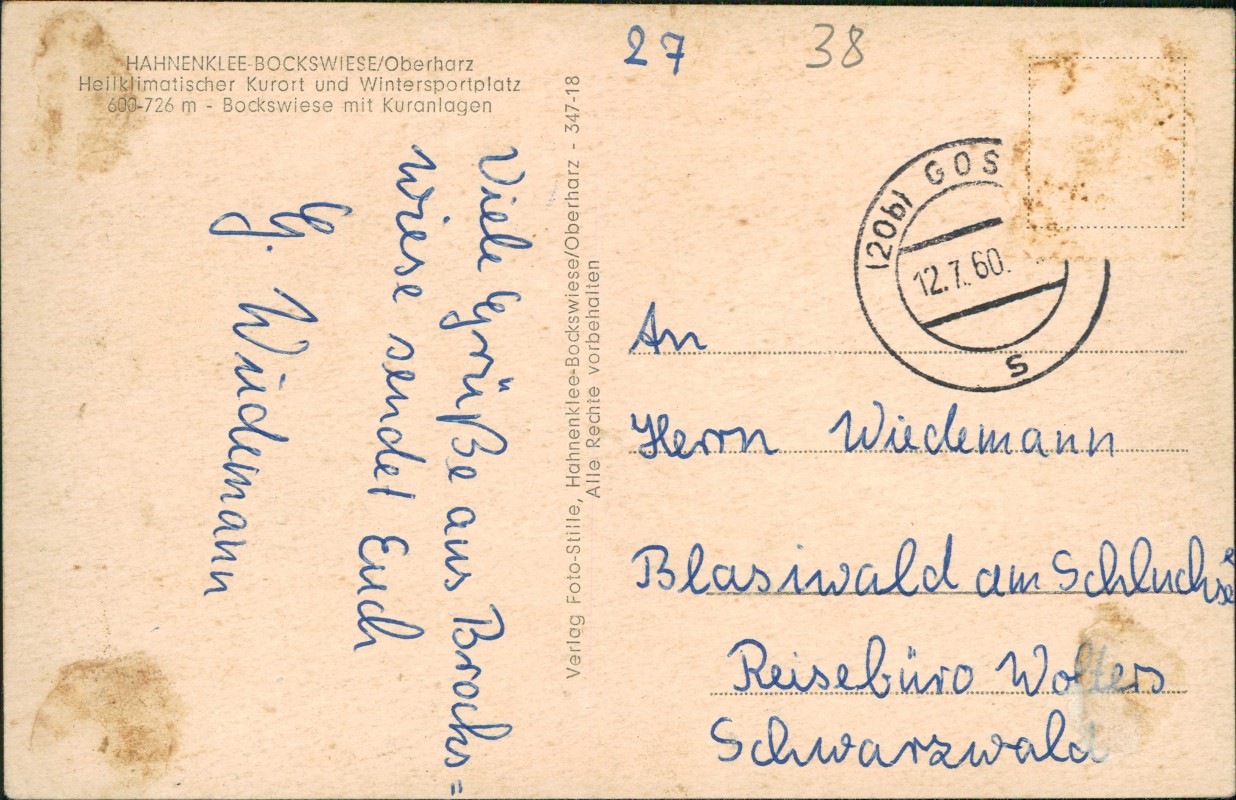 HAHNENKLEE-BOCKSWIESE/Oberharz
Heilklimatischer Kurort und Wintersportplatz
600-726 m - Bockswiese mit Kuranlagen
Viele Grüße aus Brocks=
wiese sendet Euch
G. Wiedemann
Verlag Foto-Stille, Hahnenklee-Bockswiese/Oberharz - 347-18
Alle Rechte vorbehalten
27
38
(20b) GOS
12.7.60.
s
An
Herrn Wiedemann
Blasiwald am Schluchse
Reisebüro Wolters
Schwarzwald